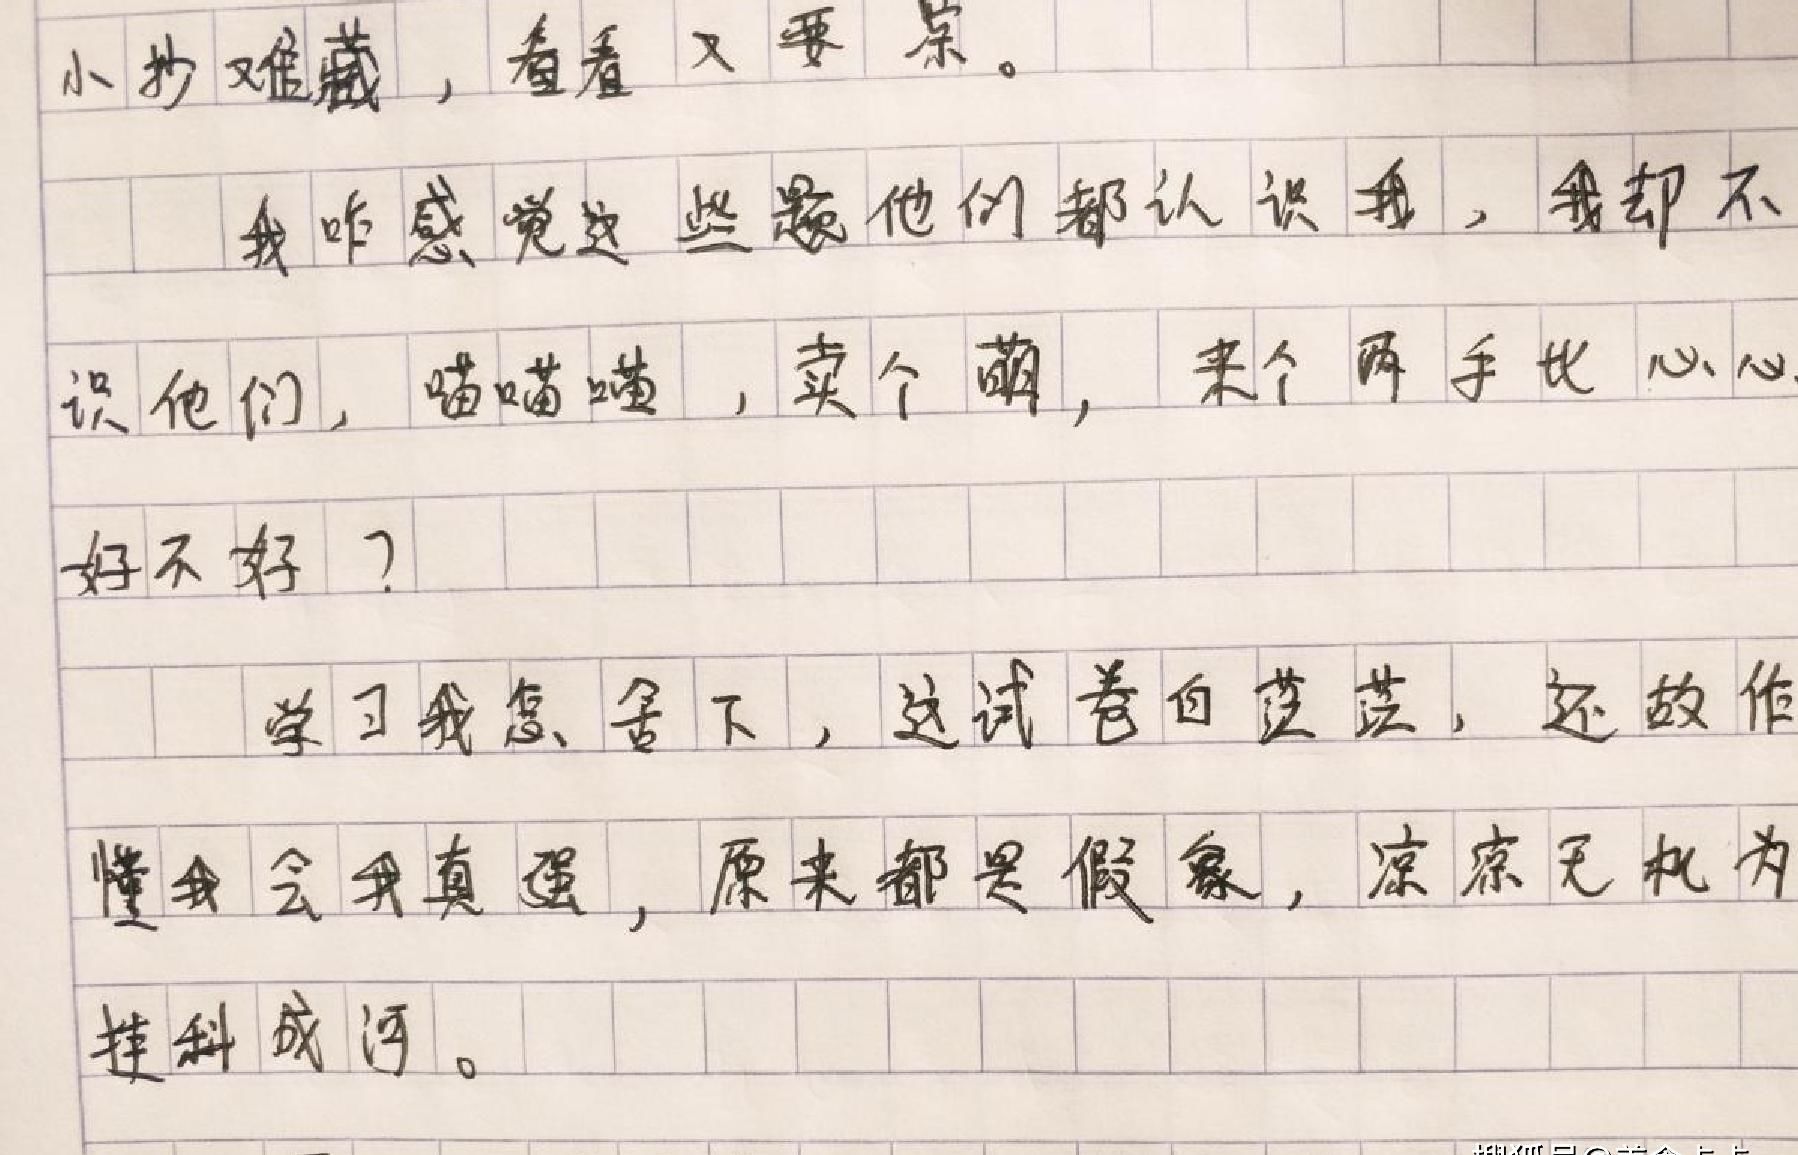 小抄难藏，看看又要祟。
我咋感觉这些题他们都认识我，我却不
识他们，喵喵喵，卖个萌，来个两手比心心
好不好？
学习我怎舍下，这试卷白茫茫，还故作
懂我会我真强，原来都是假象，凉凉无机为
挂科成河。